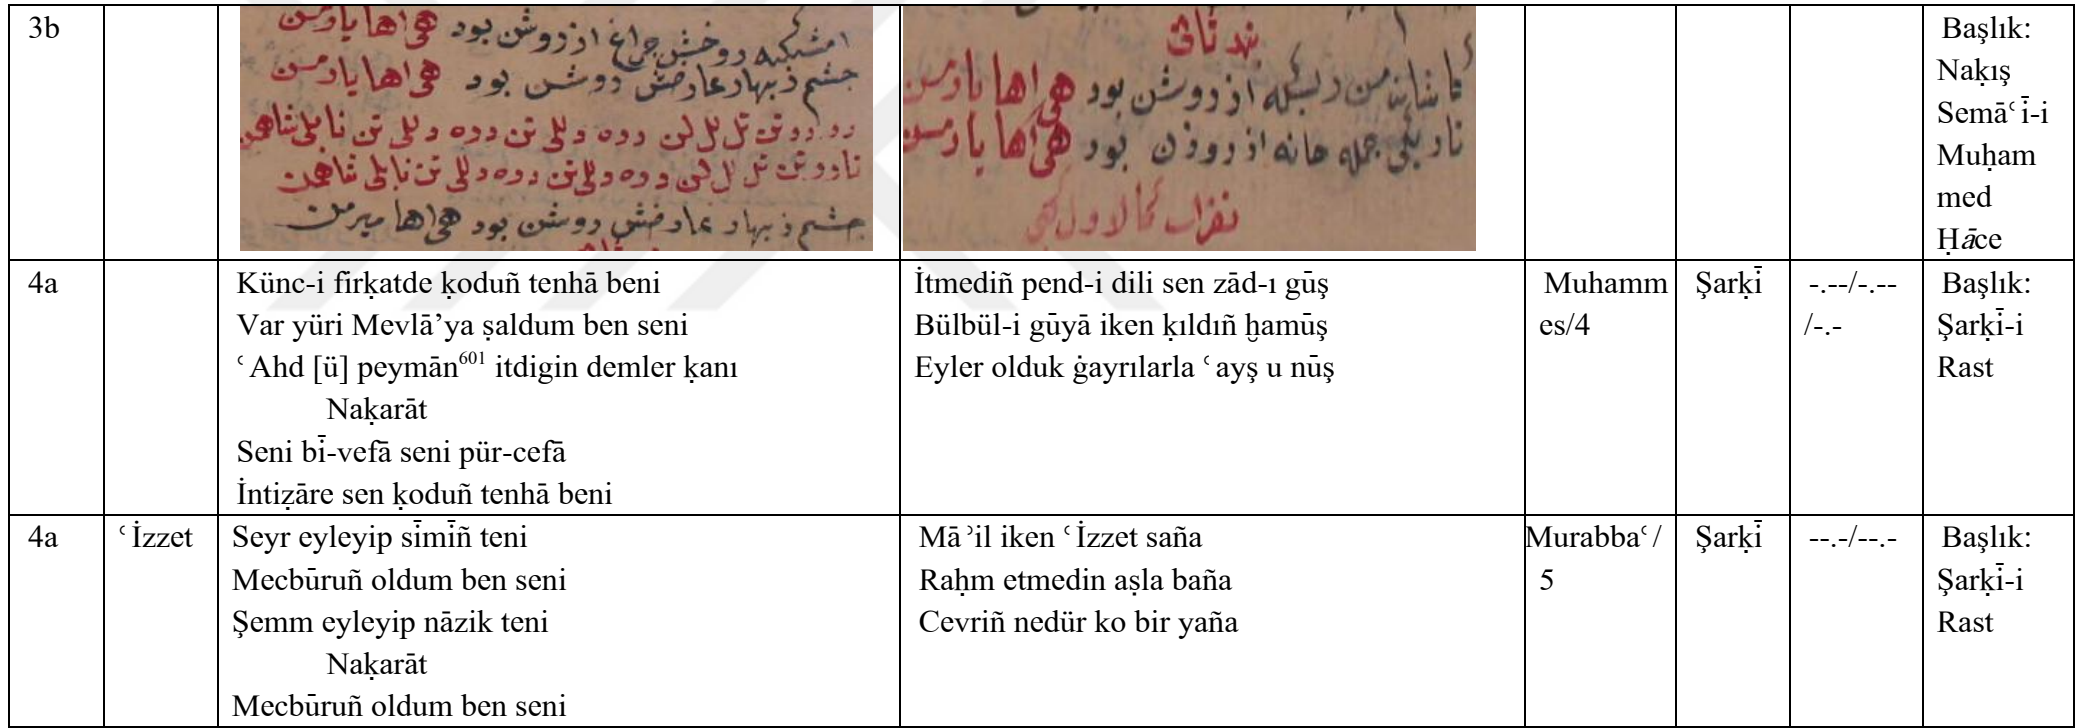 3b
امشبکه دو خش چراغ از روشن بود هی اها یار من
چشم ز بهار عارضش روشن بود هی اها یار من
چشم ز بهار عارضش روشن بود هی اها میرمن
بند ثانی
از روشن بود هی اها یار من
جمله خانه از روزن بود هی اها یار من
Başlık:
Naḳış
Semāʿī-i
Muḥam
med
Ḫāce
4a
Künc-i firḳatde ḳoduñ tenhā beni
Var yüri Mevlā’ya ṣaldum ben seni
ʿAhd [ü] peymān601 itdigin demler ḳanı
Naḳarāt
Seni bī-vefā seni pür-cefā
İntiẓāre sen ḳoduñ tenhā beni
İtmediñ pend-i dili sen zād-ı gūş
Bülbül-i gūyā iken ḳıldıñ ḫamūş
Eyler olduk ġayrılarla ʿayş u nūş
Muhamm
es/4
Şarḳī
-.--/-.--
/-.-
Başlık:
Şarḳī-i
Rast
4a
ʿİzzet
Seyr eyleyip sīmīñ teni
Mecbūruñ oldum ben seni
Şemm eyleyip nāzik teni
Naḳarāt
Mecbūruñ oldum ben seni
Māʾil iken ʿİzzet saña
Raḥm etmedin aṣla baña
Cevriñ nedür ko bir yaña
Murabbaʿ/
5
Şarḳī
--.-/--.-
Başlık:
Şarḳī-i
Rast